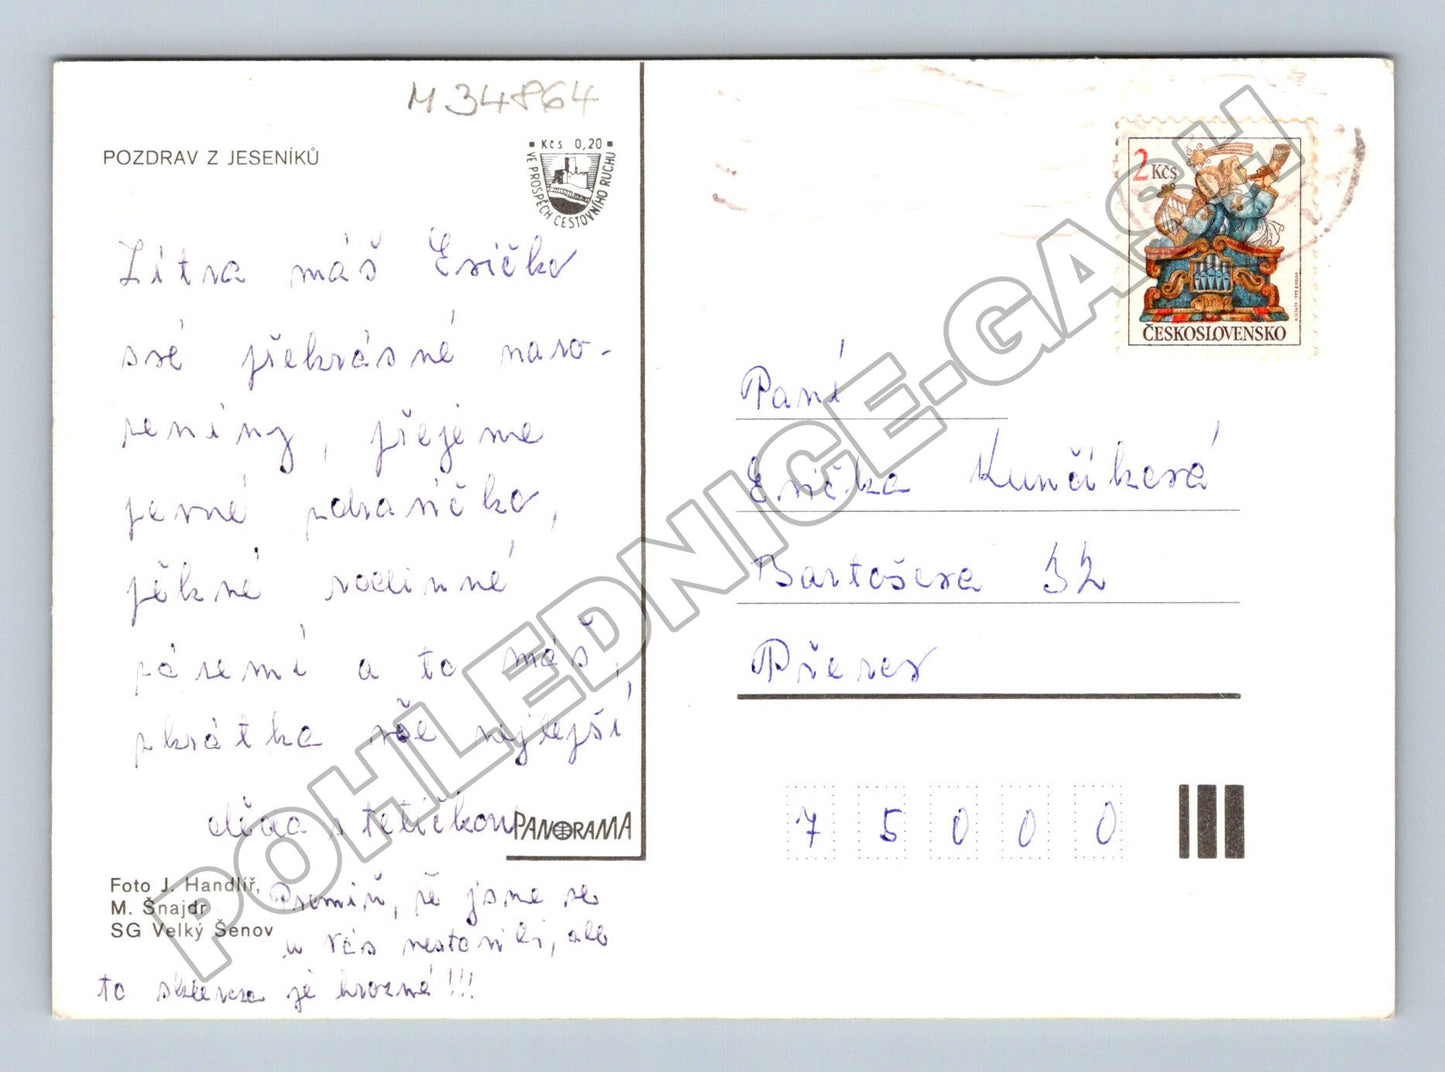 M 34864
POZDRAV Z JESENÍKŮ
Kčs 0,20
VE PROSPĚCH CESTOVNÍHO RUCHU
Zítra máš Eričko
své překrásné naro-
zeniny, přejeme
pevné zdravíčko,
pěkné rodinné
zázemí a to máš,
zkrátka vše nejlepší
s tetičkou
PANORAMA
Foto J. Handlíř,
M. Šnajdr
SG Velký Šenov
Promiň, že jsme se
u Vás nestavili, ale
to je hrozné!!!
2 Kčs
ČESKOSLOVENSKO
Paní
Erička Kunčíková
Bartošova 32
Přerov
75000
POHLEDNICE-GASH